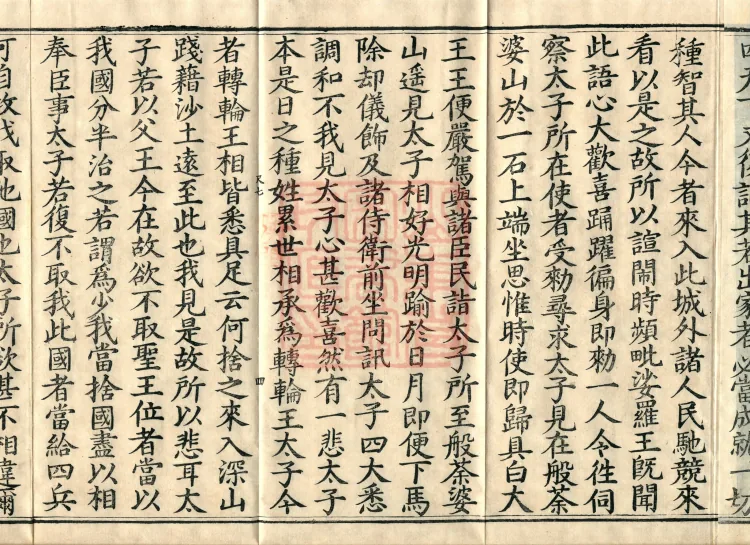 種智其人今者來入此城外諸人民馳競來
看以是之故所以諠鬧時頻毗娑羅王旣聞
此語心大歡喜踊躍徧身即勑一人令徃伺
察太子所在使者受勑尋求太子見在般荼
婆山於一石上端坐思惟時使即歸具白大
王王便嚴駕與諸臣民詣太子所至般荼婆
山遙見太子相好光明踰於日月即便下馬
除却儀飾及諸侍衛前坐問訊太子四大悉
調和不我見太子心甚歡喜然有一悲太子
本是日之種姓累世相承爲轉輪王太子今
四
者轉輪王相皆悉具足云何捨之來入深山
踐藉沙土遠至此也我見是故所以悲耳太
子若以父王今在故欲不取聖王位者當以
我國分半治之若謂爲少我當捨國盡以相
奉臣事太子若復不取我此國者當給四兵
可自攻伐取他國也太子所欲甚不相違爾